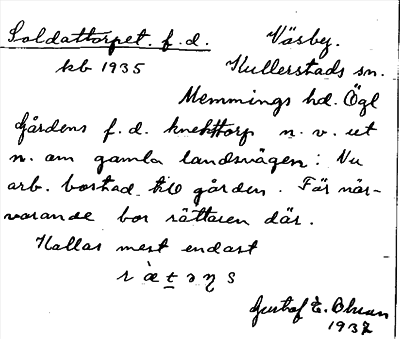 Soldattorpet. f.d. Väsby.
kb 1935 Kullerstads sn.
Memmings hd. Ögl
Gårdens f.d. knekttorp n.v. ut
n. om gamla landsvägen: Nu
arb. bostad till gården. Får när-
varande bor rättaren där.
Kallas mest endast
r æ̀ t ə ŋ s
Gustaf E. Ohman
1937